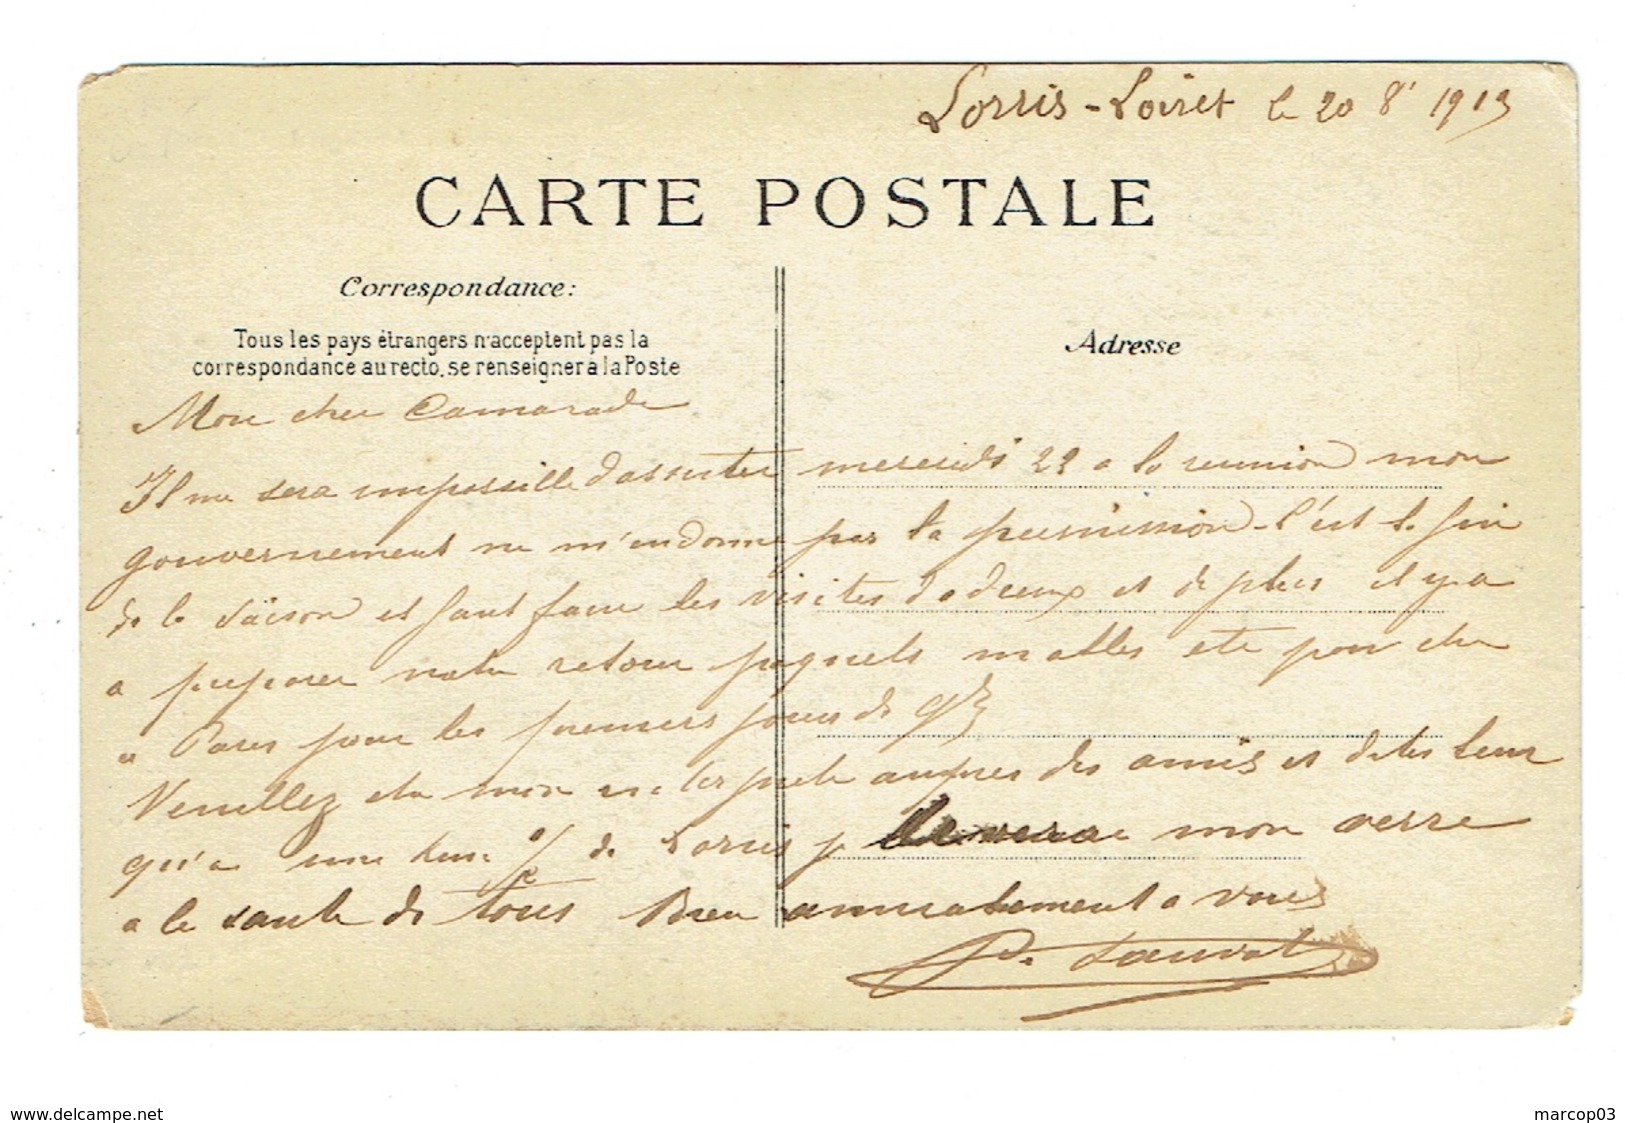 Lorris - Loiret le 20 8' 1913
CARTE POSTALE
Correspondance:
Tous les pays étrangers n'acceptent pas la
correspondance au recto, se renseigner à la Poste
Adresse
Mon cher Camarade
Il me sera impossible d'assister mercredi 22 a la reunion mon
gouvernement ne m'en donne pas la permission - C'est la fin
de la saison et faut faire les visites d'adieux et de plus il y a
a preparer notre retour paquets malles etc pour etre
a Paris pour les premiers jours de 9bre
Veuillez etre mon interprete aupres des amis et dites leur
qu'a une heure de Lorris je leverai mon verre
a la santé de tous Bien amicalement a vous
P. Sauvat
www.delcampe.net
marcop03